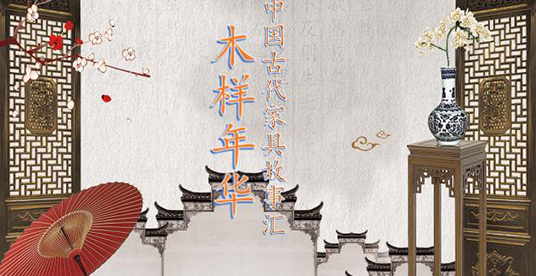 中国古代家具故事汇
木样年华